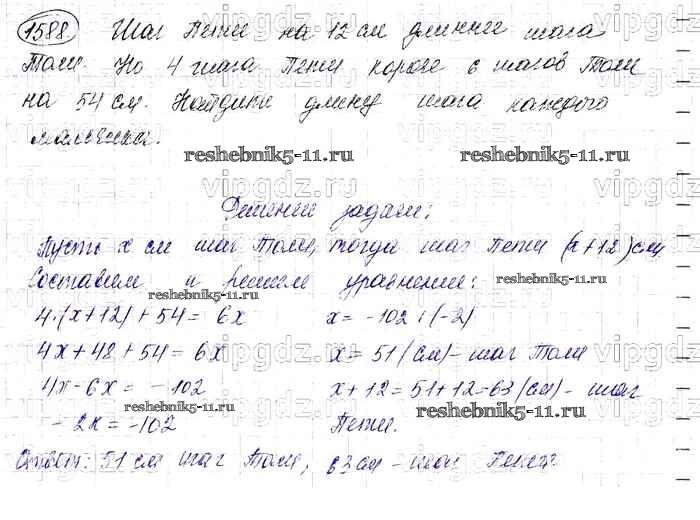 1588. Шаг Пети на 12 см длиннее шага
Толи. Но 4 шага Пети короче 6 шагов Толи
на 54 см. Найдите длину шага каждого
мальчика.
reshebnik5-11.ru reshebnik5-11.ru
Решение задачи:
Пусть x см шаг Толи, тогда шаг Пети (x+12) см
Составим и решим уравнение:
reshebnik5-11.ru reshebnik5-11.ru
4·(x+12)+54=6x
4x+48+54=6x
4x-6x=-102
-2x=-102
x=-102:(-2)
x=51(см)-шаг Толи
x+12=51+12=63(см)-шаг
Пети.
reshebnik5-11.ru reshebnik5-11.ru
Ответ: 51 см шаг Толи, 63 см-шаг Пети